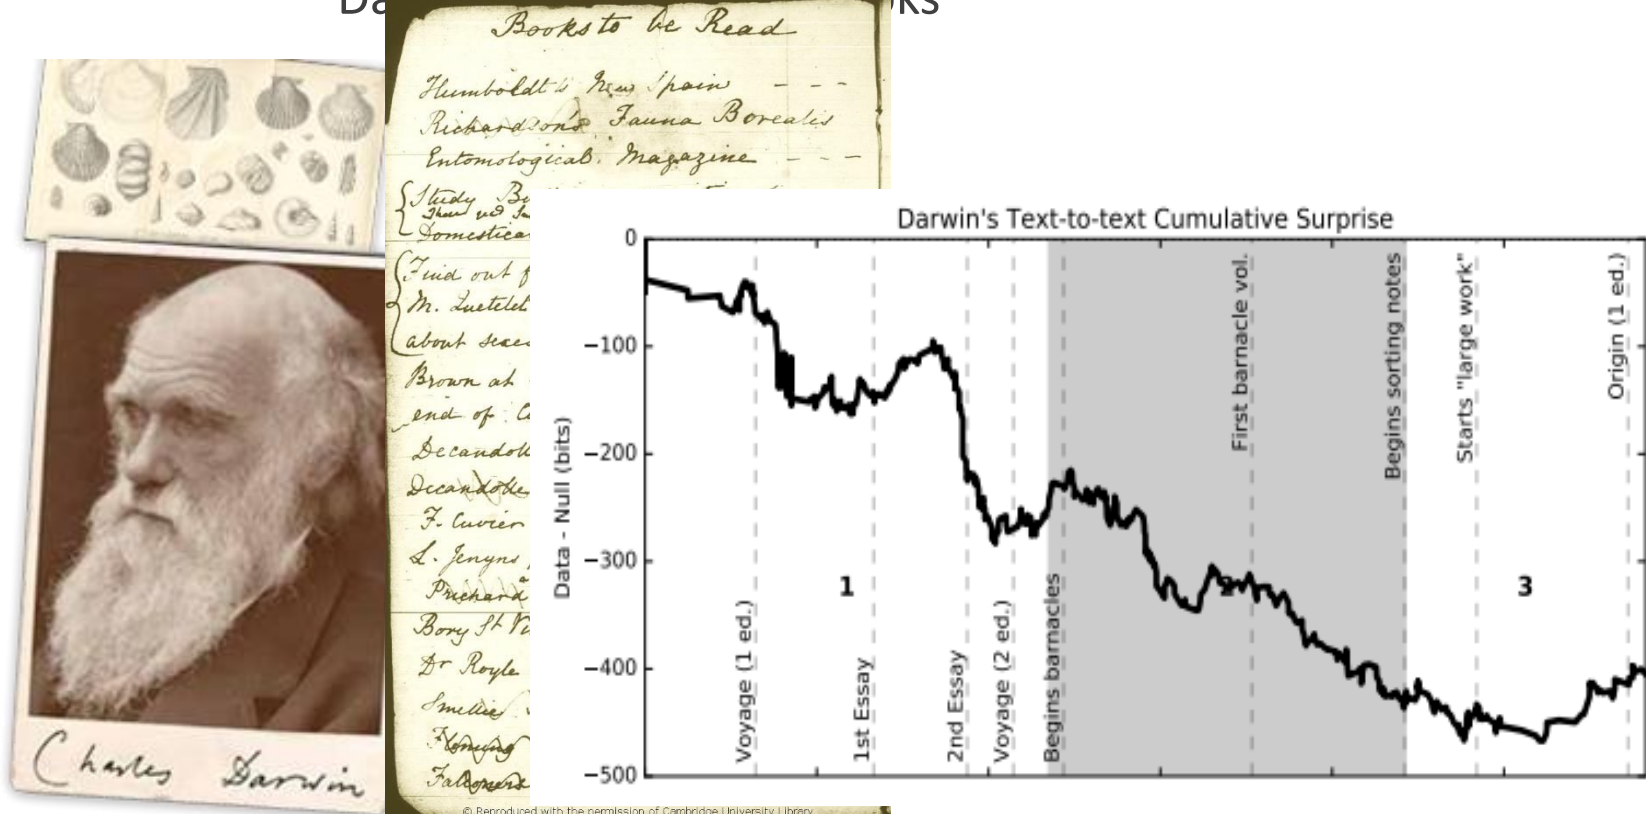 Books to be Read
Humboldt's New Spain - - -
Richardson's Fauna Borealis
Entomological Magazine - - -
Study
Domestica
Find out f
about
Brown at
end of
Decandolle
F. Cuvier
L. Jenyns
Prichard
Bory St
Dr Royle
Smellie
Fleming
Charles Darwin
© Reproduced with the permission of Cambridge University Library
Darwin's Text-to-text Cumulative Surprise
Data - Null (bits)
0
−100
−200
−300
−400
−500
Voyage (1 ed.)
1st Essay
2nd Essay
Voyage (2 ed.)
Begins barnacles
First barnacle vol.
Begins sorting notes
Starts "large work"
Origin (1 ed.)
1
2
3